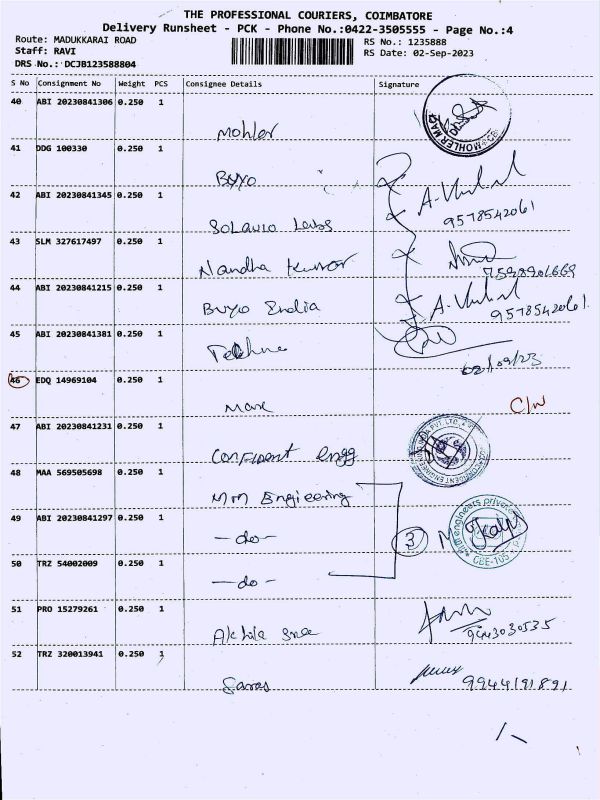 THE PROFESSIONAL COURIERS, COIMBATORE
Delivery Runsheet - PCK - Phone No.:0422-3505555 - Page No.:4
Route: MADUKKARAI ROAD
Staff: RAVI
DRS No.: DCJB123588804
RS No.: 1235888
RS Date: 02-Sep-2023
S No Consignment No Weight PCS Consignee Details Signature
40 ABI 20230841306 0.250 1
Mohler
MOHLER
41 DDG 100330 0.250 1
Buyo
42 ABI 20230841345 0.250 1
Labs
9578542061
43 SLM 327617497 0.250 1
Nandha Kumar
7598901669
44 ABI 20230841215 0.250 1
Buyo India
9578542061
45 ABI 20230841381 0.250 1
02/09/23
46 EDQ 14969104 0.250 1
C/N
47 ABI 20230841231 0.250 1
Confident Engg
48 MAA 569505698 0.250 1
Mm Engineering
49 ABI 20230841297 0.250 1
-do-
3
engineers private
CBE-105
50 TRZ 54002009 0.250 1
-do-
51 PRO 15279261 0.250 1
Akhila Sree
9443030535
52 TRZ 320013941 0.250 1
9944191891